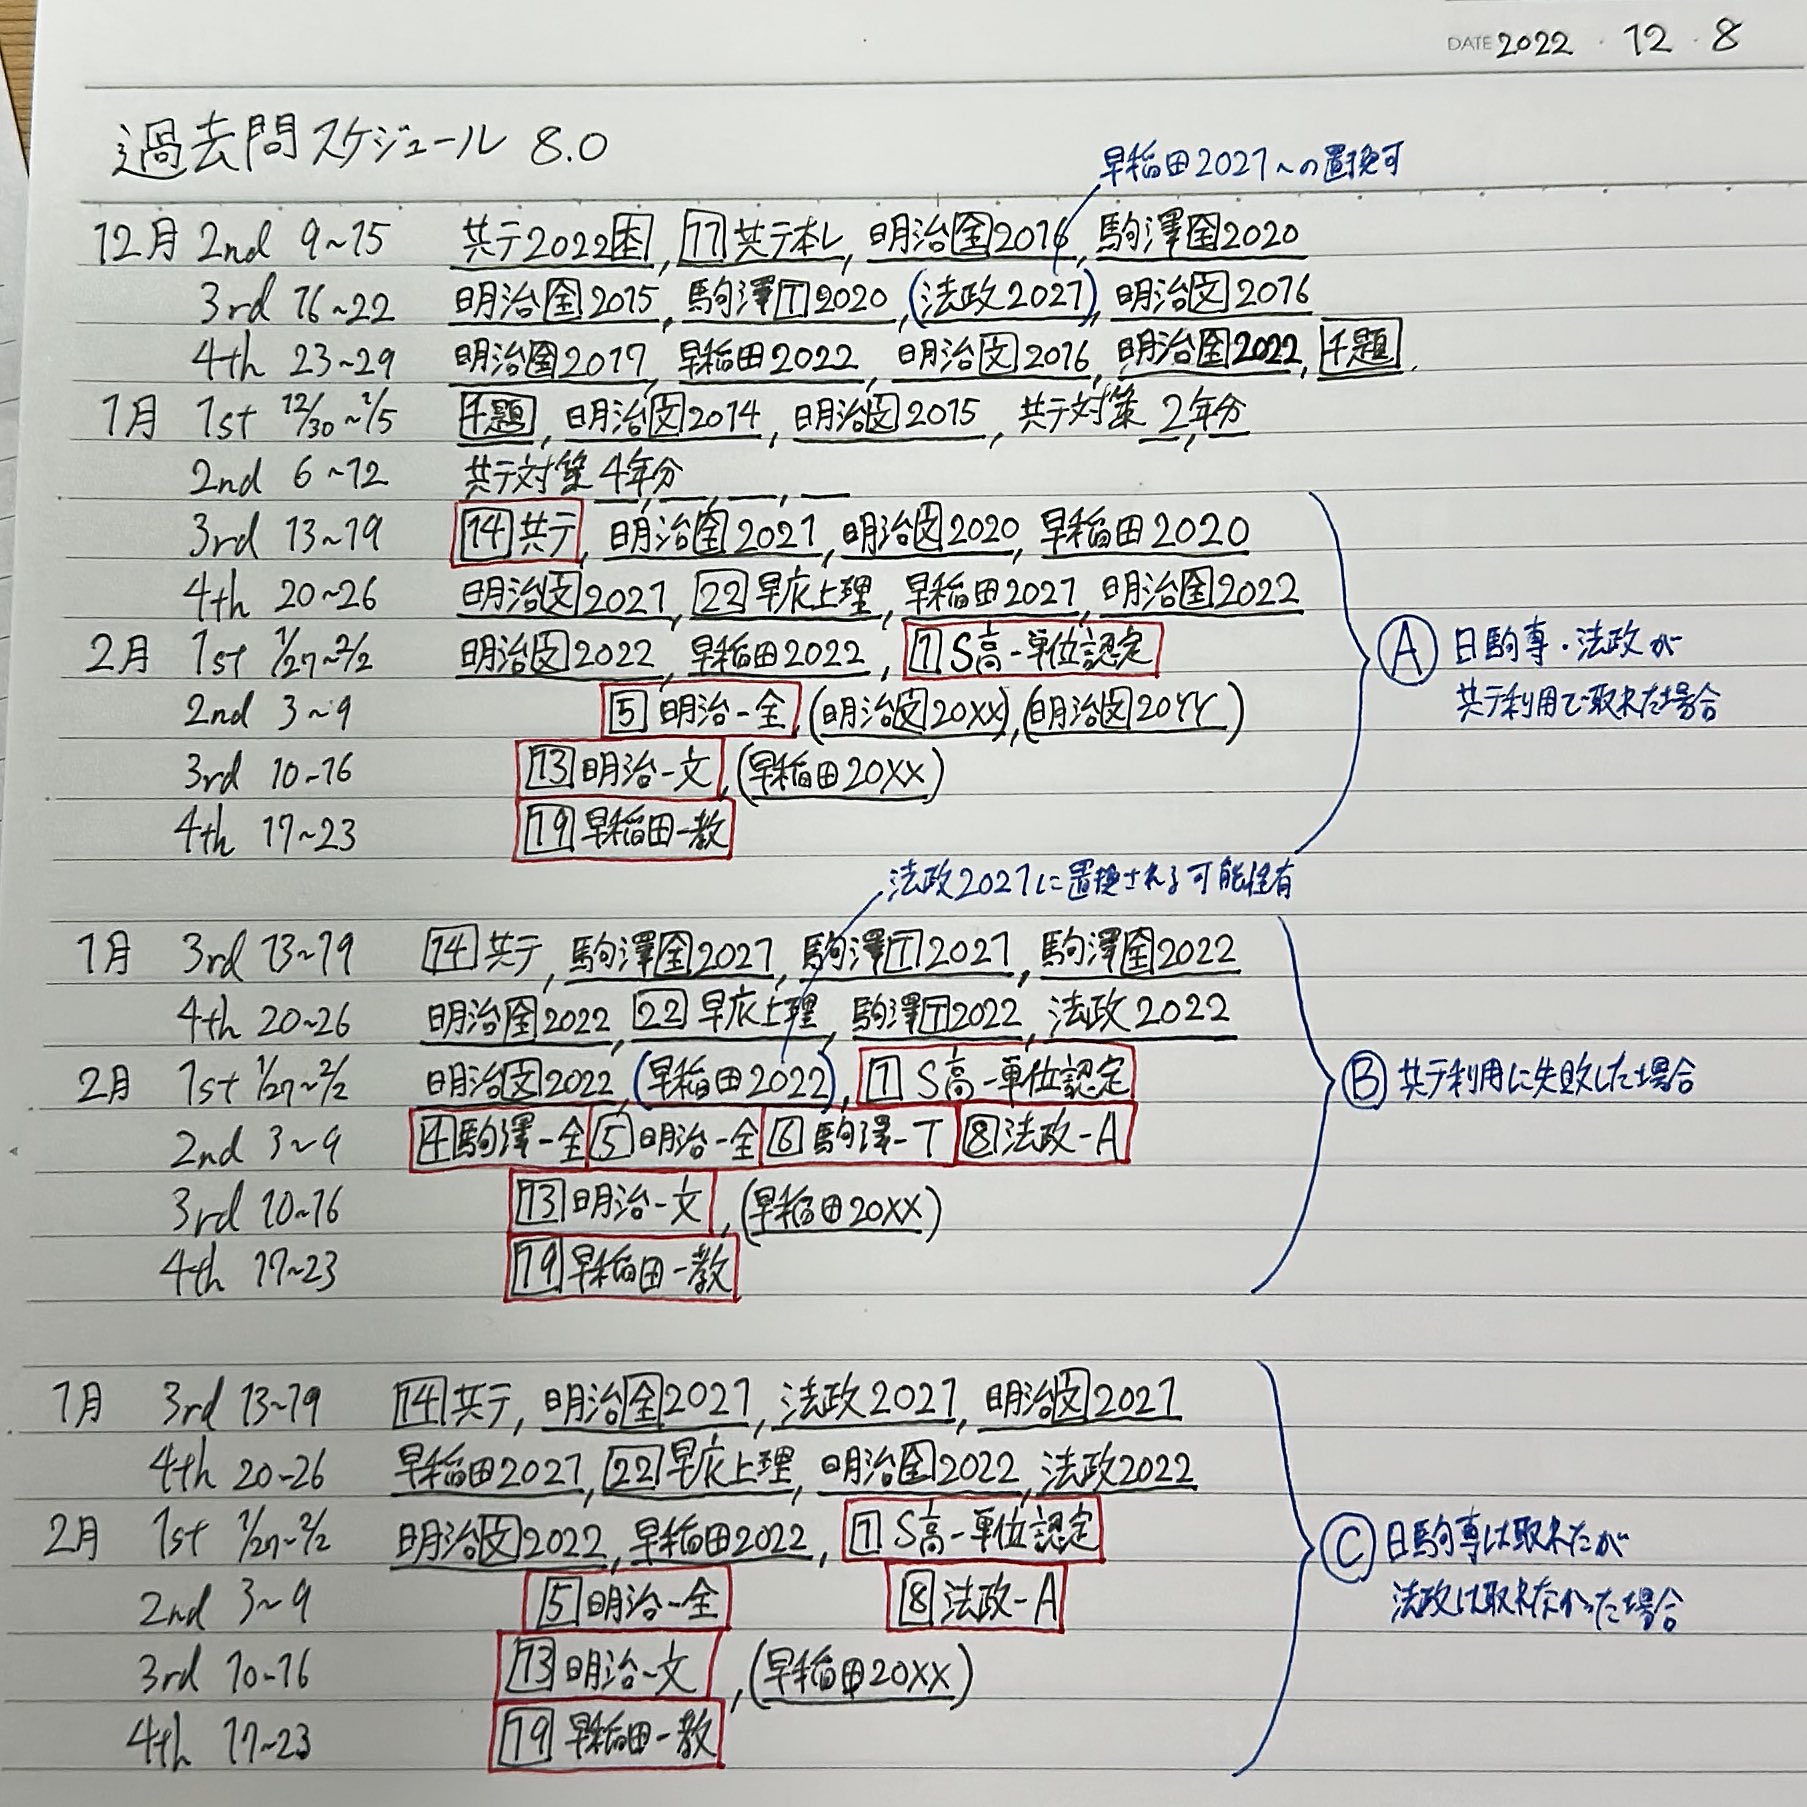 DATE 2022 . 12 . 8
過去問スケジュール 8.0
早稲田2021への置換可
12月 2nd 9~15 共テ2022困, 11 共テ本レ, 明治全2016, 駒澤全2020
3rd 16~22 明治全2015, 駒澤T2020, (法政2021), 明治文2016
4th 23~29 明治全2017, 早稲田2022, 明治文2016, 明治全2022, 千題,
1月 1st 12/30~1/5 千題, 明治文2014, 明治文2015, 共テ対策 2年分
2nd 6~12 共テ対策 4年分
3rd 13~19 14 共テ, 明治全2021, 明治文2020, 早稲田2020
4th 20~26 明治文2021, 22 早庆上理, 早稲田2021, 明治全2022
2月 1st 1/27~2/2 明治文2022, 早稲田2022, 1 S高-単位認定
2nd 3~9 5 明治-全 (明治文20XX), (明治文20YY)
3rd 10~16 13 明治-文, (早稲田20XX)
4th 17~23 19 早稲田-教
A 日駒専・法政が
共テ利用で取れた場合
法政2021に置換される可能性有
1月 3rd 13~19 14 共テ, 駒澤全2021, 駒澤T2021, 駒澤全2022
4th 20~26 明治全2022, 22 早庆上理, 駒澤T2022, 法政2022
2月 1st 1/27~2/2 明治文2022, (早稲田2022), 1 S高-単位認定
2nd 3~9 4 駒澤-全 5 明治-全 6 駒澤-T 8 法政-A
3rd 10~16 13 明治-文, (早稲田20XX)
4th 17~23 19 早稲田-教
B 共テ利用に失敗した場合
1月 3rd 13~19 14 共テ, 明治全2021, 法政2021, 明治文2021
4th 20~26 早稲田2021, 22 早庆上理, 明治全2022, 法政2022
2月 1st 1/27~2/2 明治文2022, 早稲田2022, 1 S高-単位認定
2nd 3~9 5 明治-全 8 法政-A
3rd 10~16 13 明治-文, (早稲田20XX)
4th 17~23 19 早稲田-教
C 日駒専は取れたが
法政は取れなかった場合